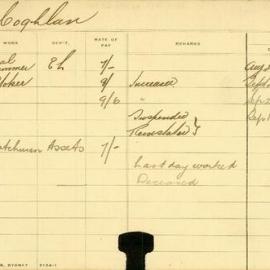 Coghlan
WORK DEP'T. RATE OF PAY REMARKS
al
immer EL 7/- Aug
toker 9/ Increase Sept
9/6 " Sep
Suspended Sept
Reinstated }
atchman Assets 7/-
Last day worked
Deceased
SYDNEY